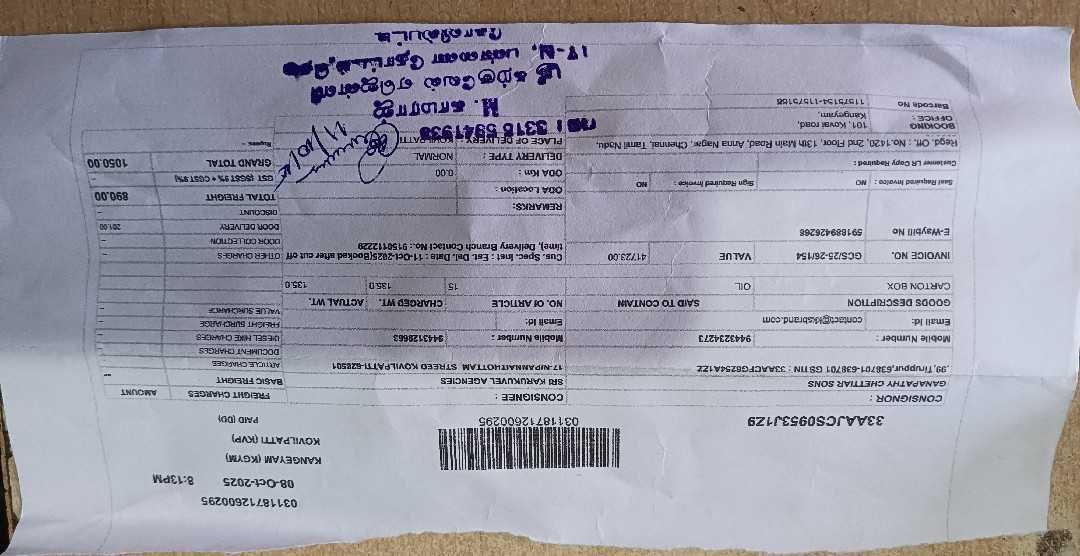 031187126000295
08-Oct-2025 8:13PM
KANGEYAM (KGYM)
KOVILPATTI (KVP)
PAID (DD)
33AAJCS0953J1Z9
031187126000295
CONSIGNOR :
GANAPATHY CHETTIAR SONS
,99,Tiruppur,638701-638701 GSTIN : 33AACFG8254A1ZZ
Mobile Number : 9443234273
Email Id: contact@kksbrand.com
CONSIGNEE :
SRI KARUKUVEL AGENCIES
17-NIPANNAITHOTTAM STREED KOVILPATTI-628501
Mobile Number : 9443129663
Email Id:
FREIGHT CHARGES AMOUNT
BASIC FREIGHT --
ARTICLE CHARGES
DOCUMENT CHARGES
DIESEL HIKE CHARGES --
FREIGHT SURCHARGE
VALUE SURCHARGE --
OTHER CHARGES --
DOOR COLLECTION --
DOOR DELIVERY 201.00
DISCOUNT --
TOTAL FREIGHT 890.00
GST (SGST9% + CGST9%) --
GRAND TOTAL 1050.00
Rupees --
GOODS DESCRIPTION SAID TO CONTAIN NO. Of ARTICLE CHARGED WT. ACTUAL WT.
CARTON BOX OIL 15 135.0 135.0
INVOICE NO. GCS/25-26/154 VALUE 41723.00
E-Waybill No 591689426268
Cus. Spec. Inst : Est. Del. Date : 11-Oct-2025(Booked after cut off
time), Delivery Branch Contact No.: 9150112229
REMARKS:
Seal Required : NO Sign Required : Invoice NO
Customer LR Copy Required :
ODA : Location :
ODA : Km 0.00
DELIVERY TYPE : NORMAL
PLACE OF DELIVERY : KOVILPATTI
Regd. Off. : No.1420, 2nd Floor, 13th Main Road, Anna Nagar, Chennai, Tamil Nadu,
BOOKING
OFFICE :
101, Kovai road,
Kangeyam,
Barcode No 11575154-11575168
3316 5941938
M. காமராஜ்
ஸ்ரீ கற்குவேல் ஏஜென்ஸி
17-N, பண்ணை தோட்டம்
கோவில்பட்டி
11/10/25